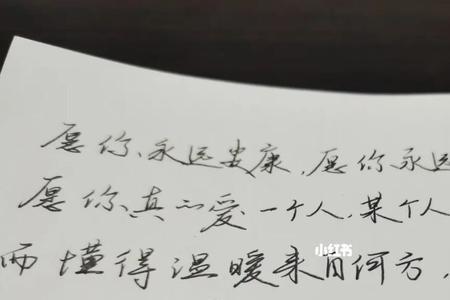 愿你永远安康，愿你永远
愿你真心爱一个人，某个人
而懂得温暖来自何方，
小红书